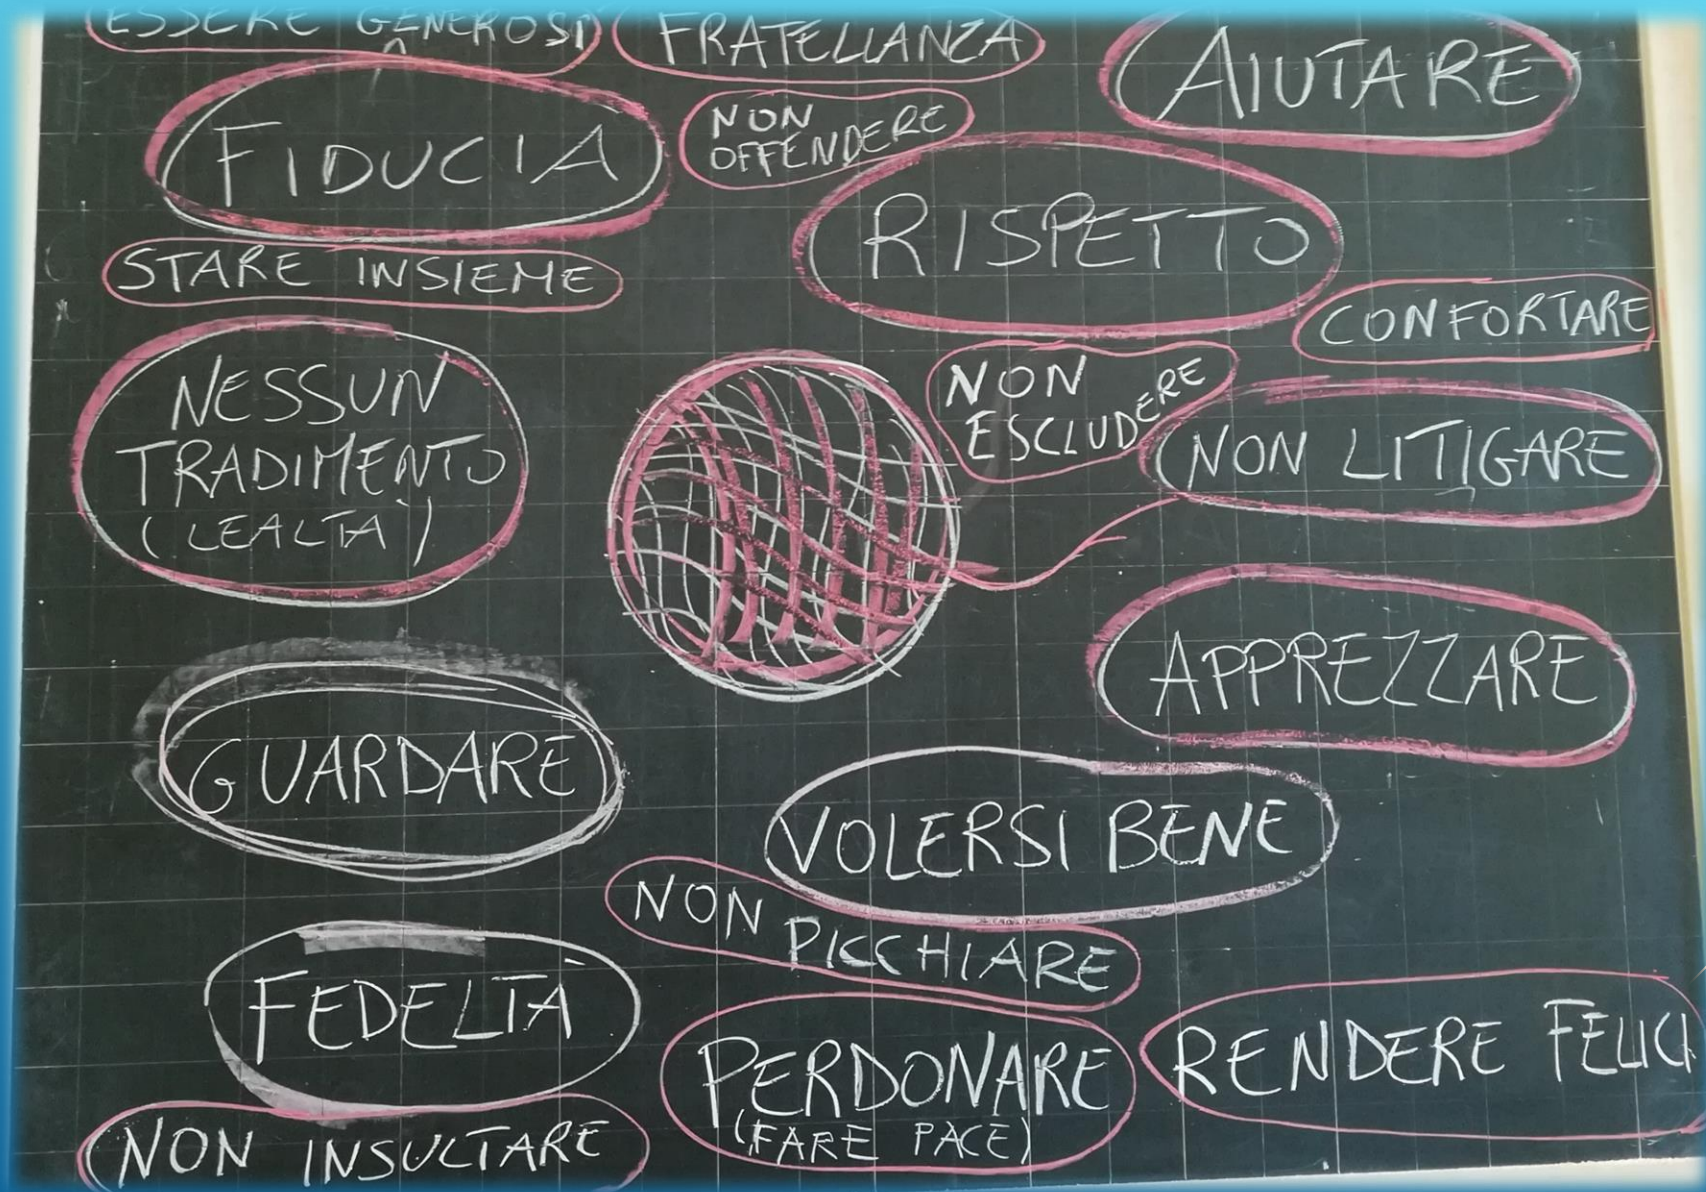 ESSERE GENEROSI
FRATELLANZA
AIUTARE
FIDUCIA
NON
OFFENDERE
RISPETTO
STARE INSIEME
CONFORTARE
NESSUN
TRADIMENTO
(LEALTA')
NON
ESCLUDERE
NON LITIGARE
APPREZZARE
GUARDARE
VOLERSI BENE
NON PICCHIARE
FEDELTÀ
PERDONARE
(FARE PACE)
RENDERE FELICI
NON INSULTARE